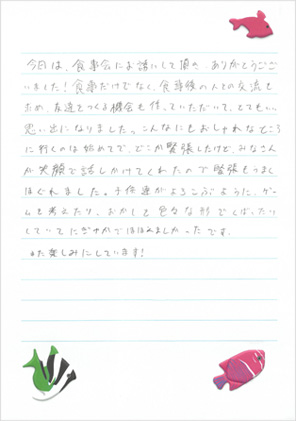 今日は、食事会にお誘いして頂き ありがとうござ
いました!食事だけでなく、食事後の人との交流も
ふかめ、友達をつくる機会も作っていただいて、とてもいい
思い出になりました。こんなにもおしゃれなところ
に行くのは始めてで、どこか緊張したけど、みなさん
が笑顔で話しかけてくれたので緊張もうまく
ほぐれました。子供達がよろこぶように、ゲー
ムを考えたり、おかしを色々な形でくばったり
していてにぎやかでほほえましかったです。
また楽しみにしています!